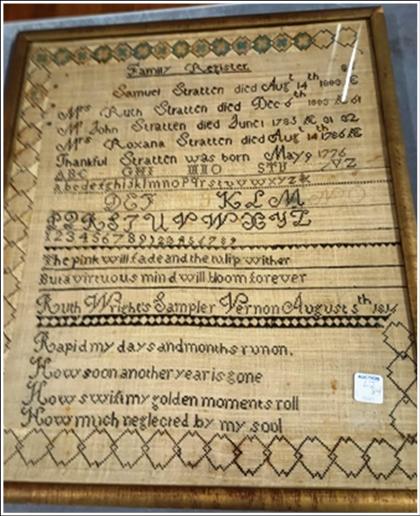 Family Register
Samuel Stratten died Augt 14th
Mrs Ruth Stratten died Decr 6th
Mr John Stratten died June 1 1783
Mrs Roxana Stratten died Augt 14th 1786 Æ
Thankful Stratten was born May 9 1776
ABC GHI NO STU VZ
abcdefghijklmnopqrstuvwxyz&
DEF KLM
PQRSTUVWXYZ
1234567891234567 89
The pink will fade and the tulip wither
But a virtuous mind will bloom forever
Ruth Wright's Sampler Vernon August 5th
Rapid my days and months run on.
How soon another year is gone
How swift my golden moments roll
How much neglected by my soul
AUCTION